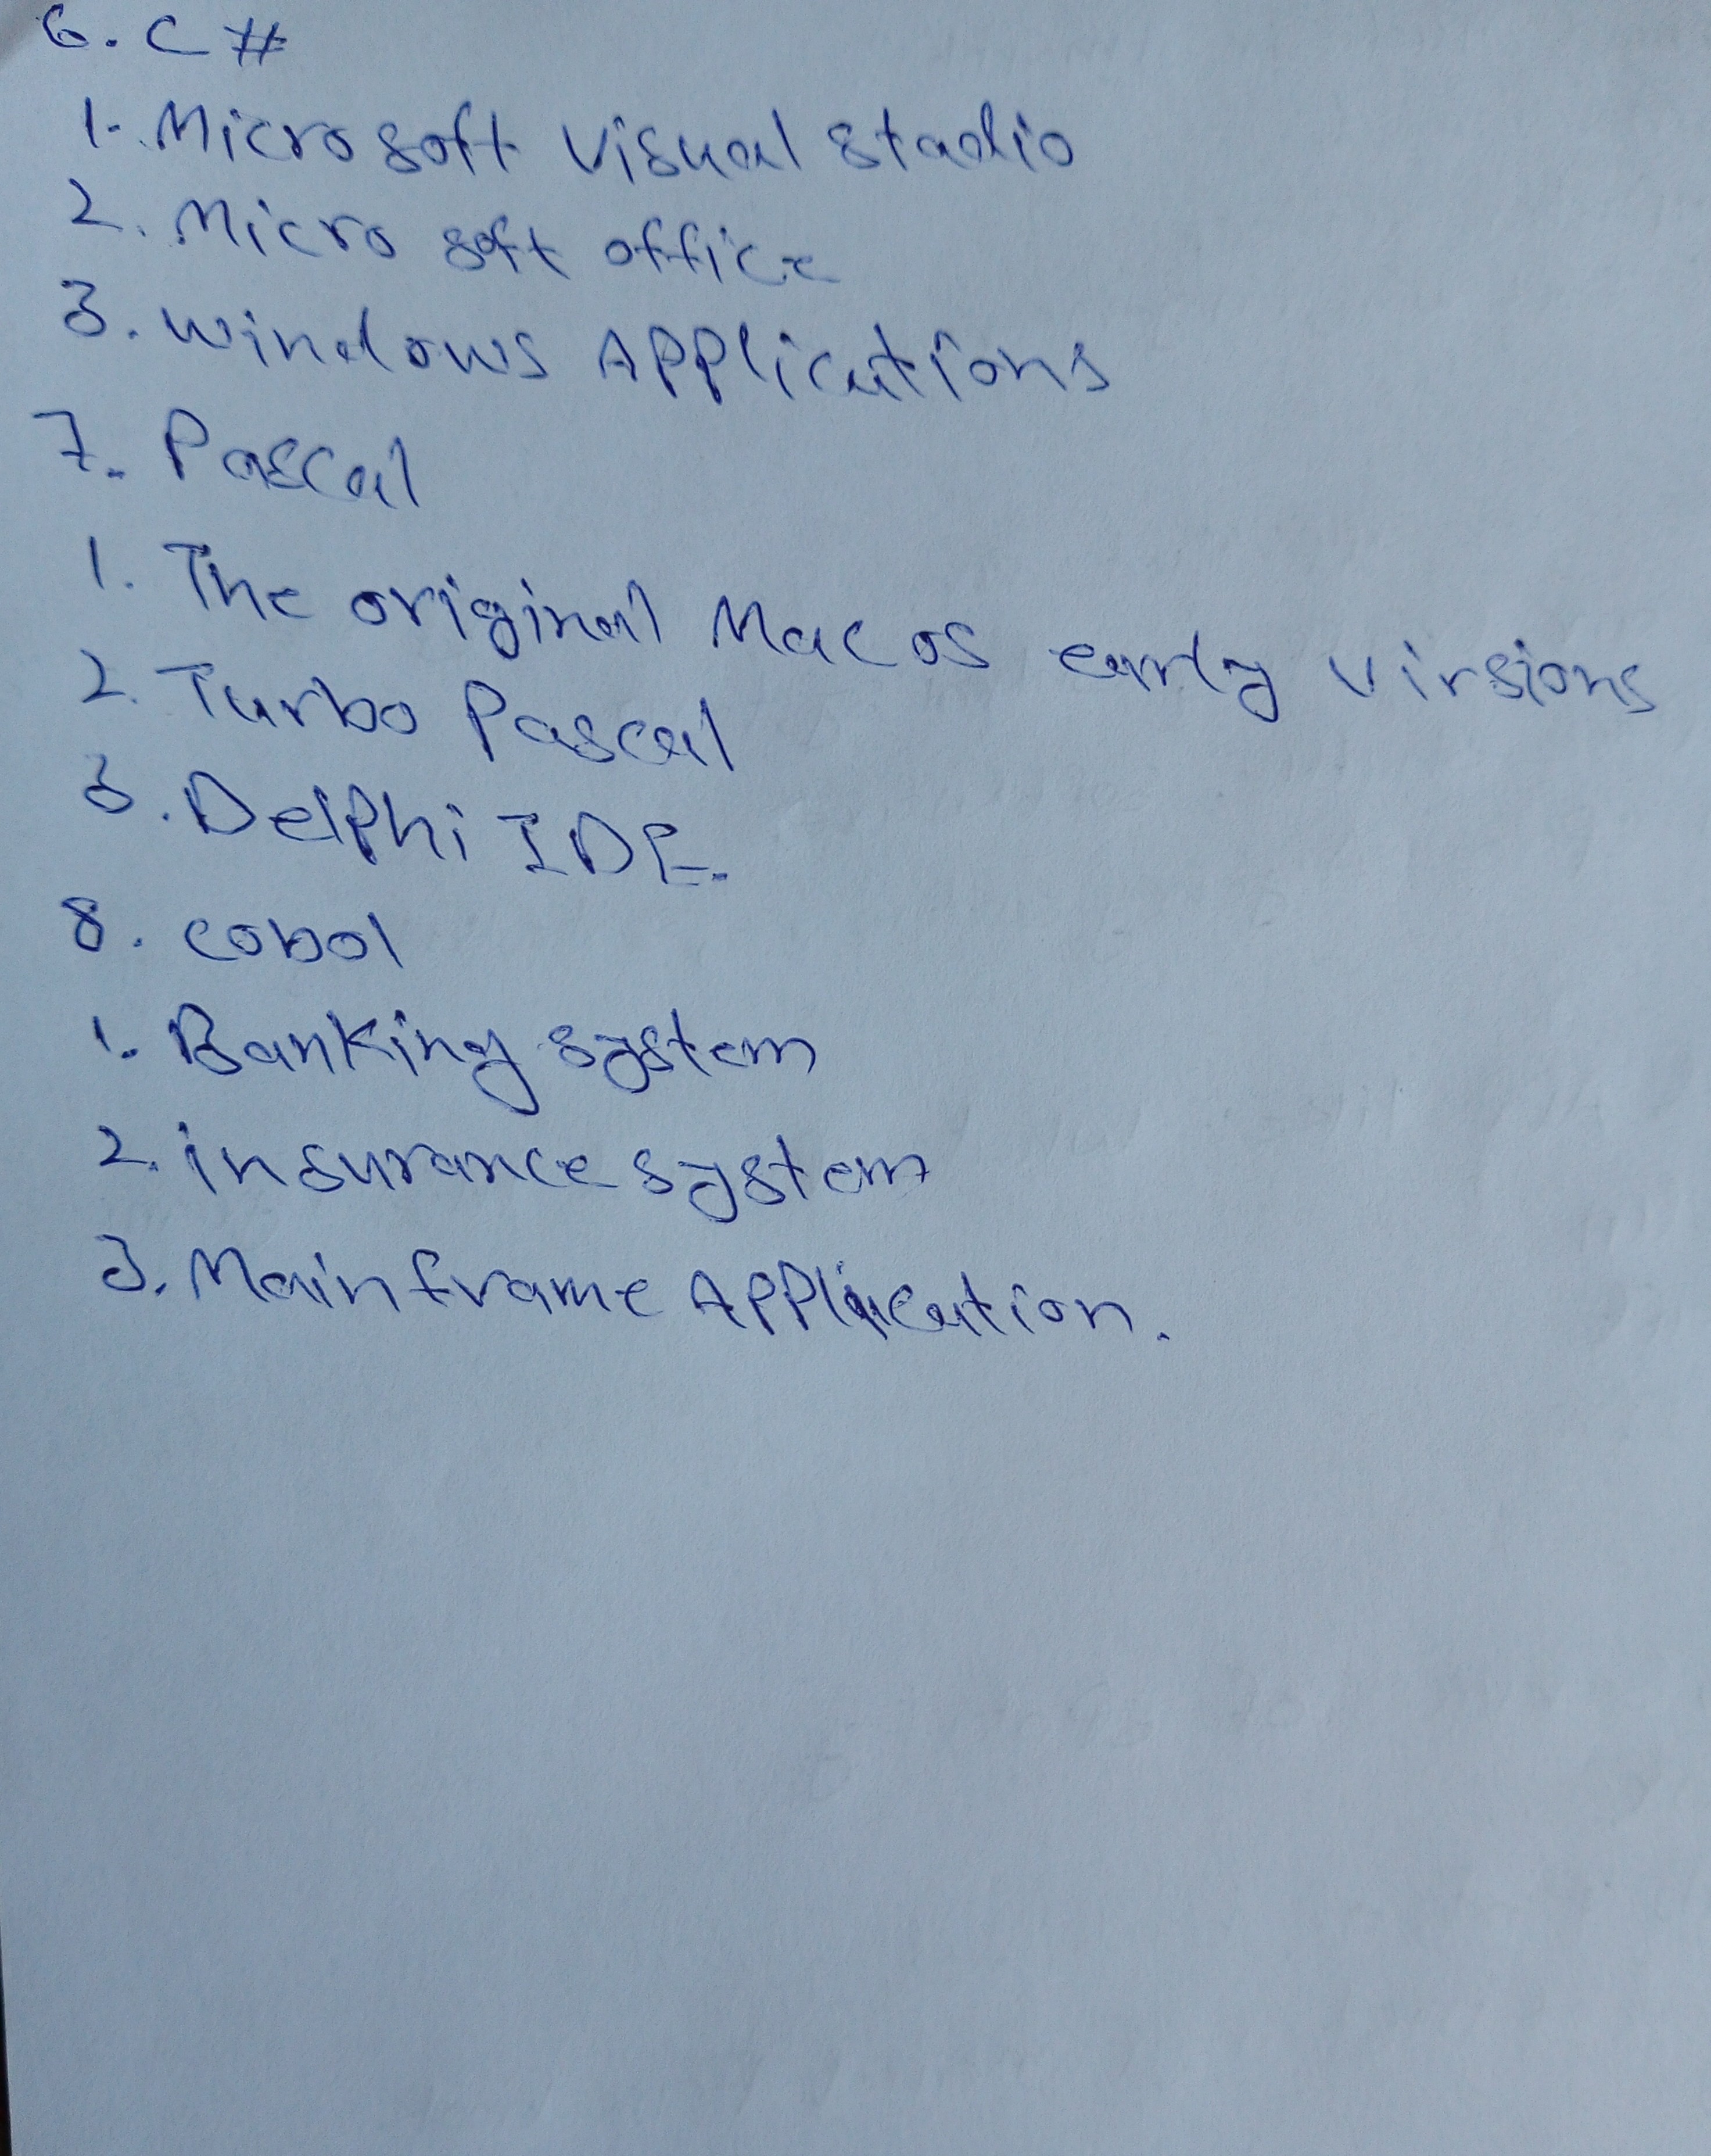 6. C #
1. Micro soft visual stadio
2. Micro soft office
3. windows Applications
7. Pascal
1. The original Mac os early virsions
2. Turbo Pascal
3. Delphi IDE.
8. cobol
1. Banking system
2. insurance system
3. Mainframe Application.